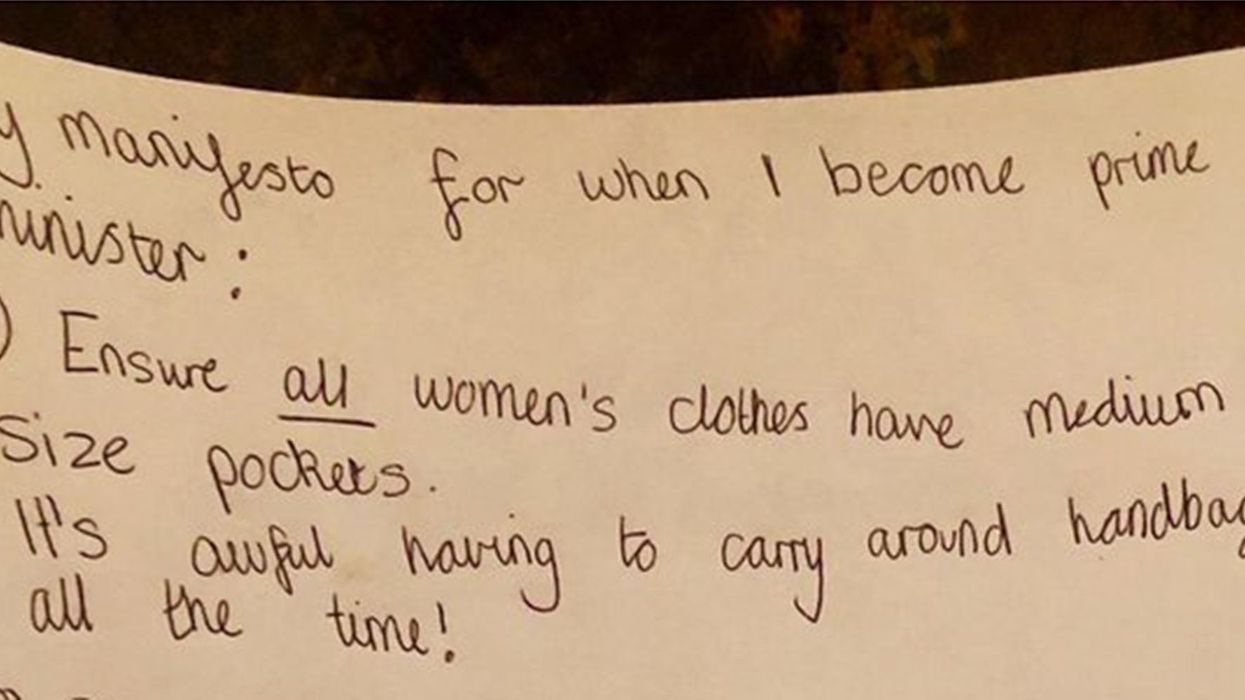 y manifesto for when I become prime
minister :
) Ensure all women's clothes have medium
size pockets.
It's awful having to carry around handbag
all the time!